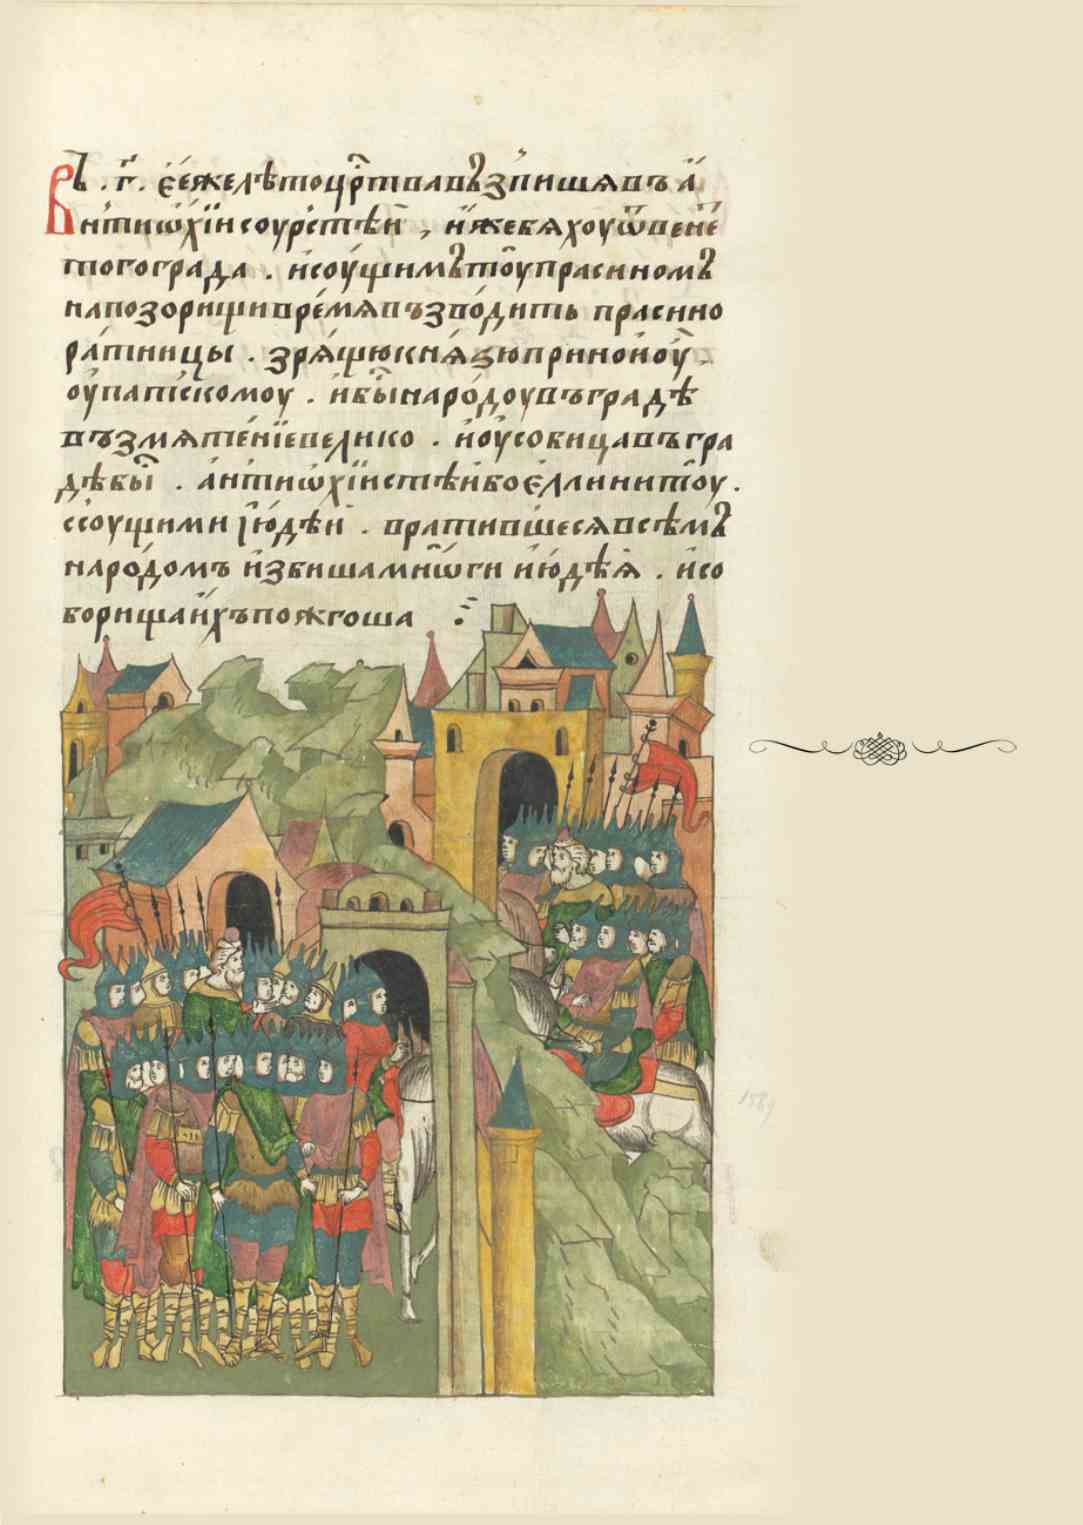 Въ .г҃. ѐежелѣтоцр҃твавъзпишѧвъа
нтиѡ҆хїисоурстѣй , ӥжебѧхоуѿвене
тогограда . ӥсоущимътоупрасиномъ
напозорищивремѧвъзводить прасино
ратницы . зрѧщюкнѧзюприноноу
оупатскомоу . ӥбы̑народоувъградѣ
възмѧтенїевелико . ӥоусобицавъгра
дѣбы̑ . антиѡхїистѣйбоеллинитоу .
ссоущими їюдѣй . вратившесѧвсѣмъ
народомъ ӥзбишамнѡги ӥюдѣѧ . ӥсо
борищаӥхъпожгоша